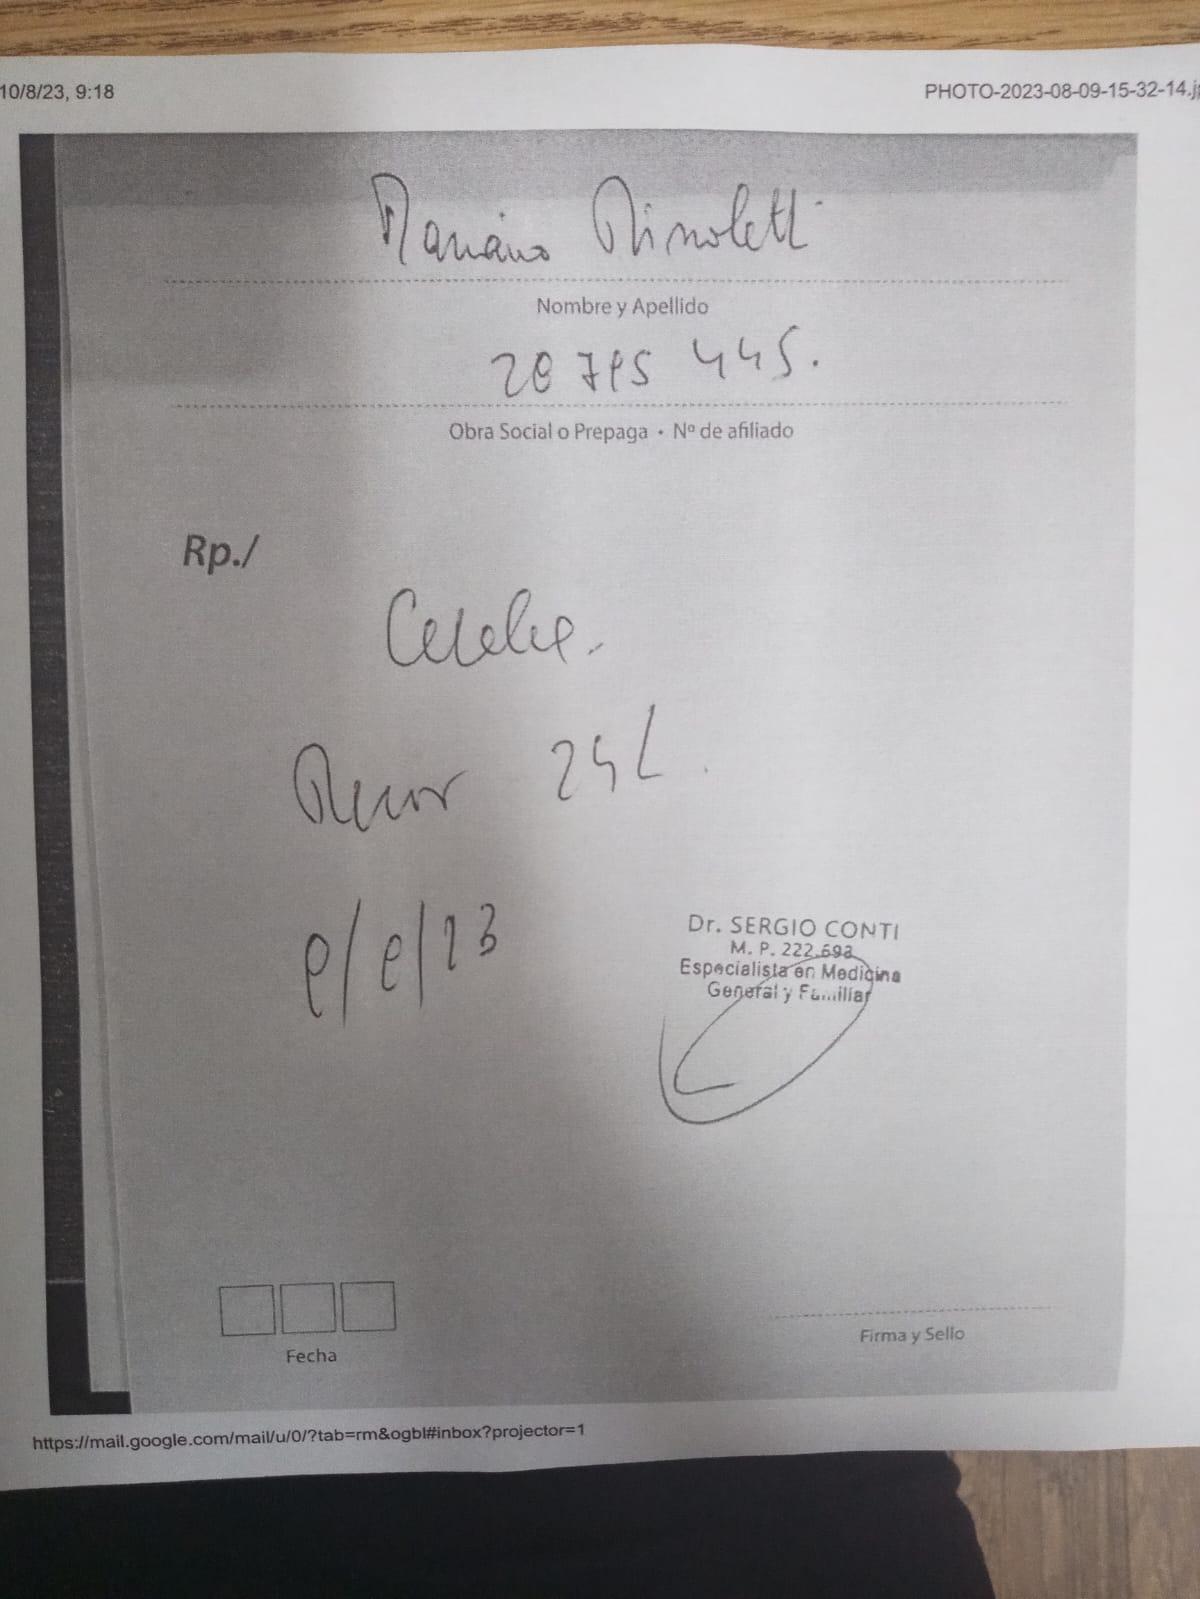 10/8/23, 9:18
PHOTO-2023-08-09-15-32-14.j
Mariano Minoletti
Nombre y Apellido
28 785 445.
Obra Social o Prepaga • Nº de afiliado
Rp./
24
8/8/23
Dr. SERGIO CONTI
M. P. 222.693
Especialista en Medicina
General y Familiar
Fecha
Firma y Sello
https://mail.google.com/mail/u/0/?tab=rm&ogbl#inbox?projector=1